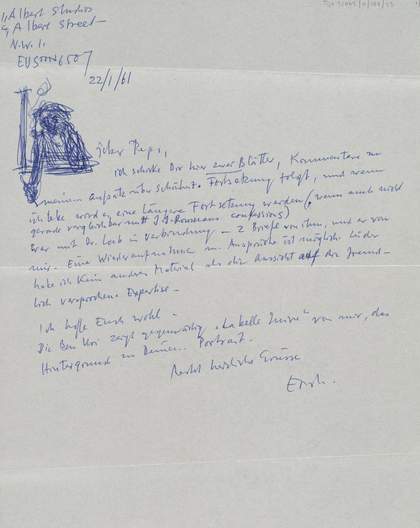 1, Albert Studios
9 Albert Street
N.W. 1.
EUSTON 6507
22/1/61
lieber Peps,
ich schicke Dir hier zwei Blätter, Kommentare zu
meinem Aufsatz über Schönheit. Fortsetzung folgt, und wenn
ich lebe wird es eine längere Fortsetzung werden (wenn auch nicht
gerade vergleichbar mit J.J. Rousseaus confessions)
war mit Dr. in Verbindung – 2 Briefe von ihm, und er von
mir – Eine Wiederaufnahme möglich leider
habe ich kein anderes Material als die Aussicht auf die freund-
lich versprochene Expertise –
Ich hoffe Euch wohl –
Die Ben Uri zeigt gegenwärtig „La belle Juive" von mir, das
Hintergrund zu Deinem Portrait.
Recht herzliche Grüsse